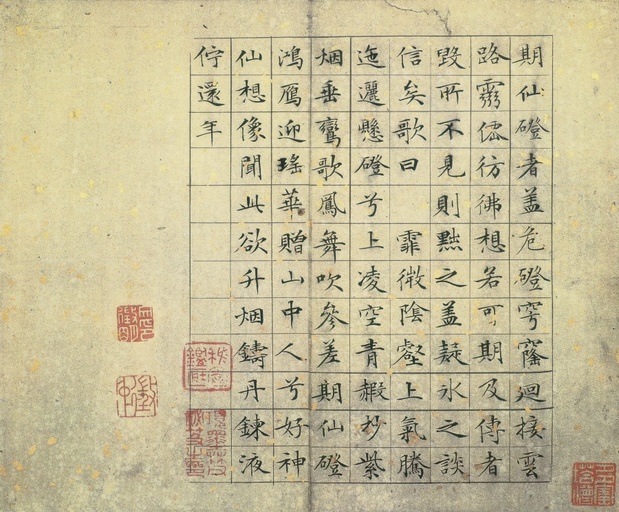 期仙磴者盖危磴穹窿迴接雲
路霛僊彷彿想若可期及傳者
毀所不見則黜之盖疑氷之談
信矣歌曰　霏微陰壑上氣騰
迤邐懸磴兮上凌空青赮杪紫
烟垂鸞歌鳳舞吹參差期仙磴
鴻鴈迎瑤華贈山中人兮好神
仙想像聞此欲升烟鑄丹鍊液
佇還年